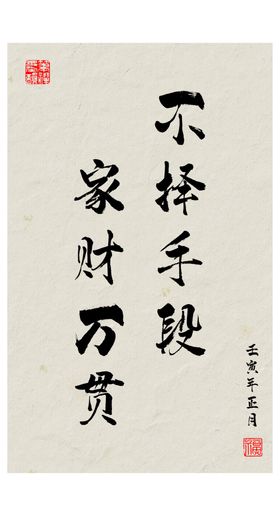 不择手段
家财万贯
壬寅年正月